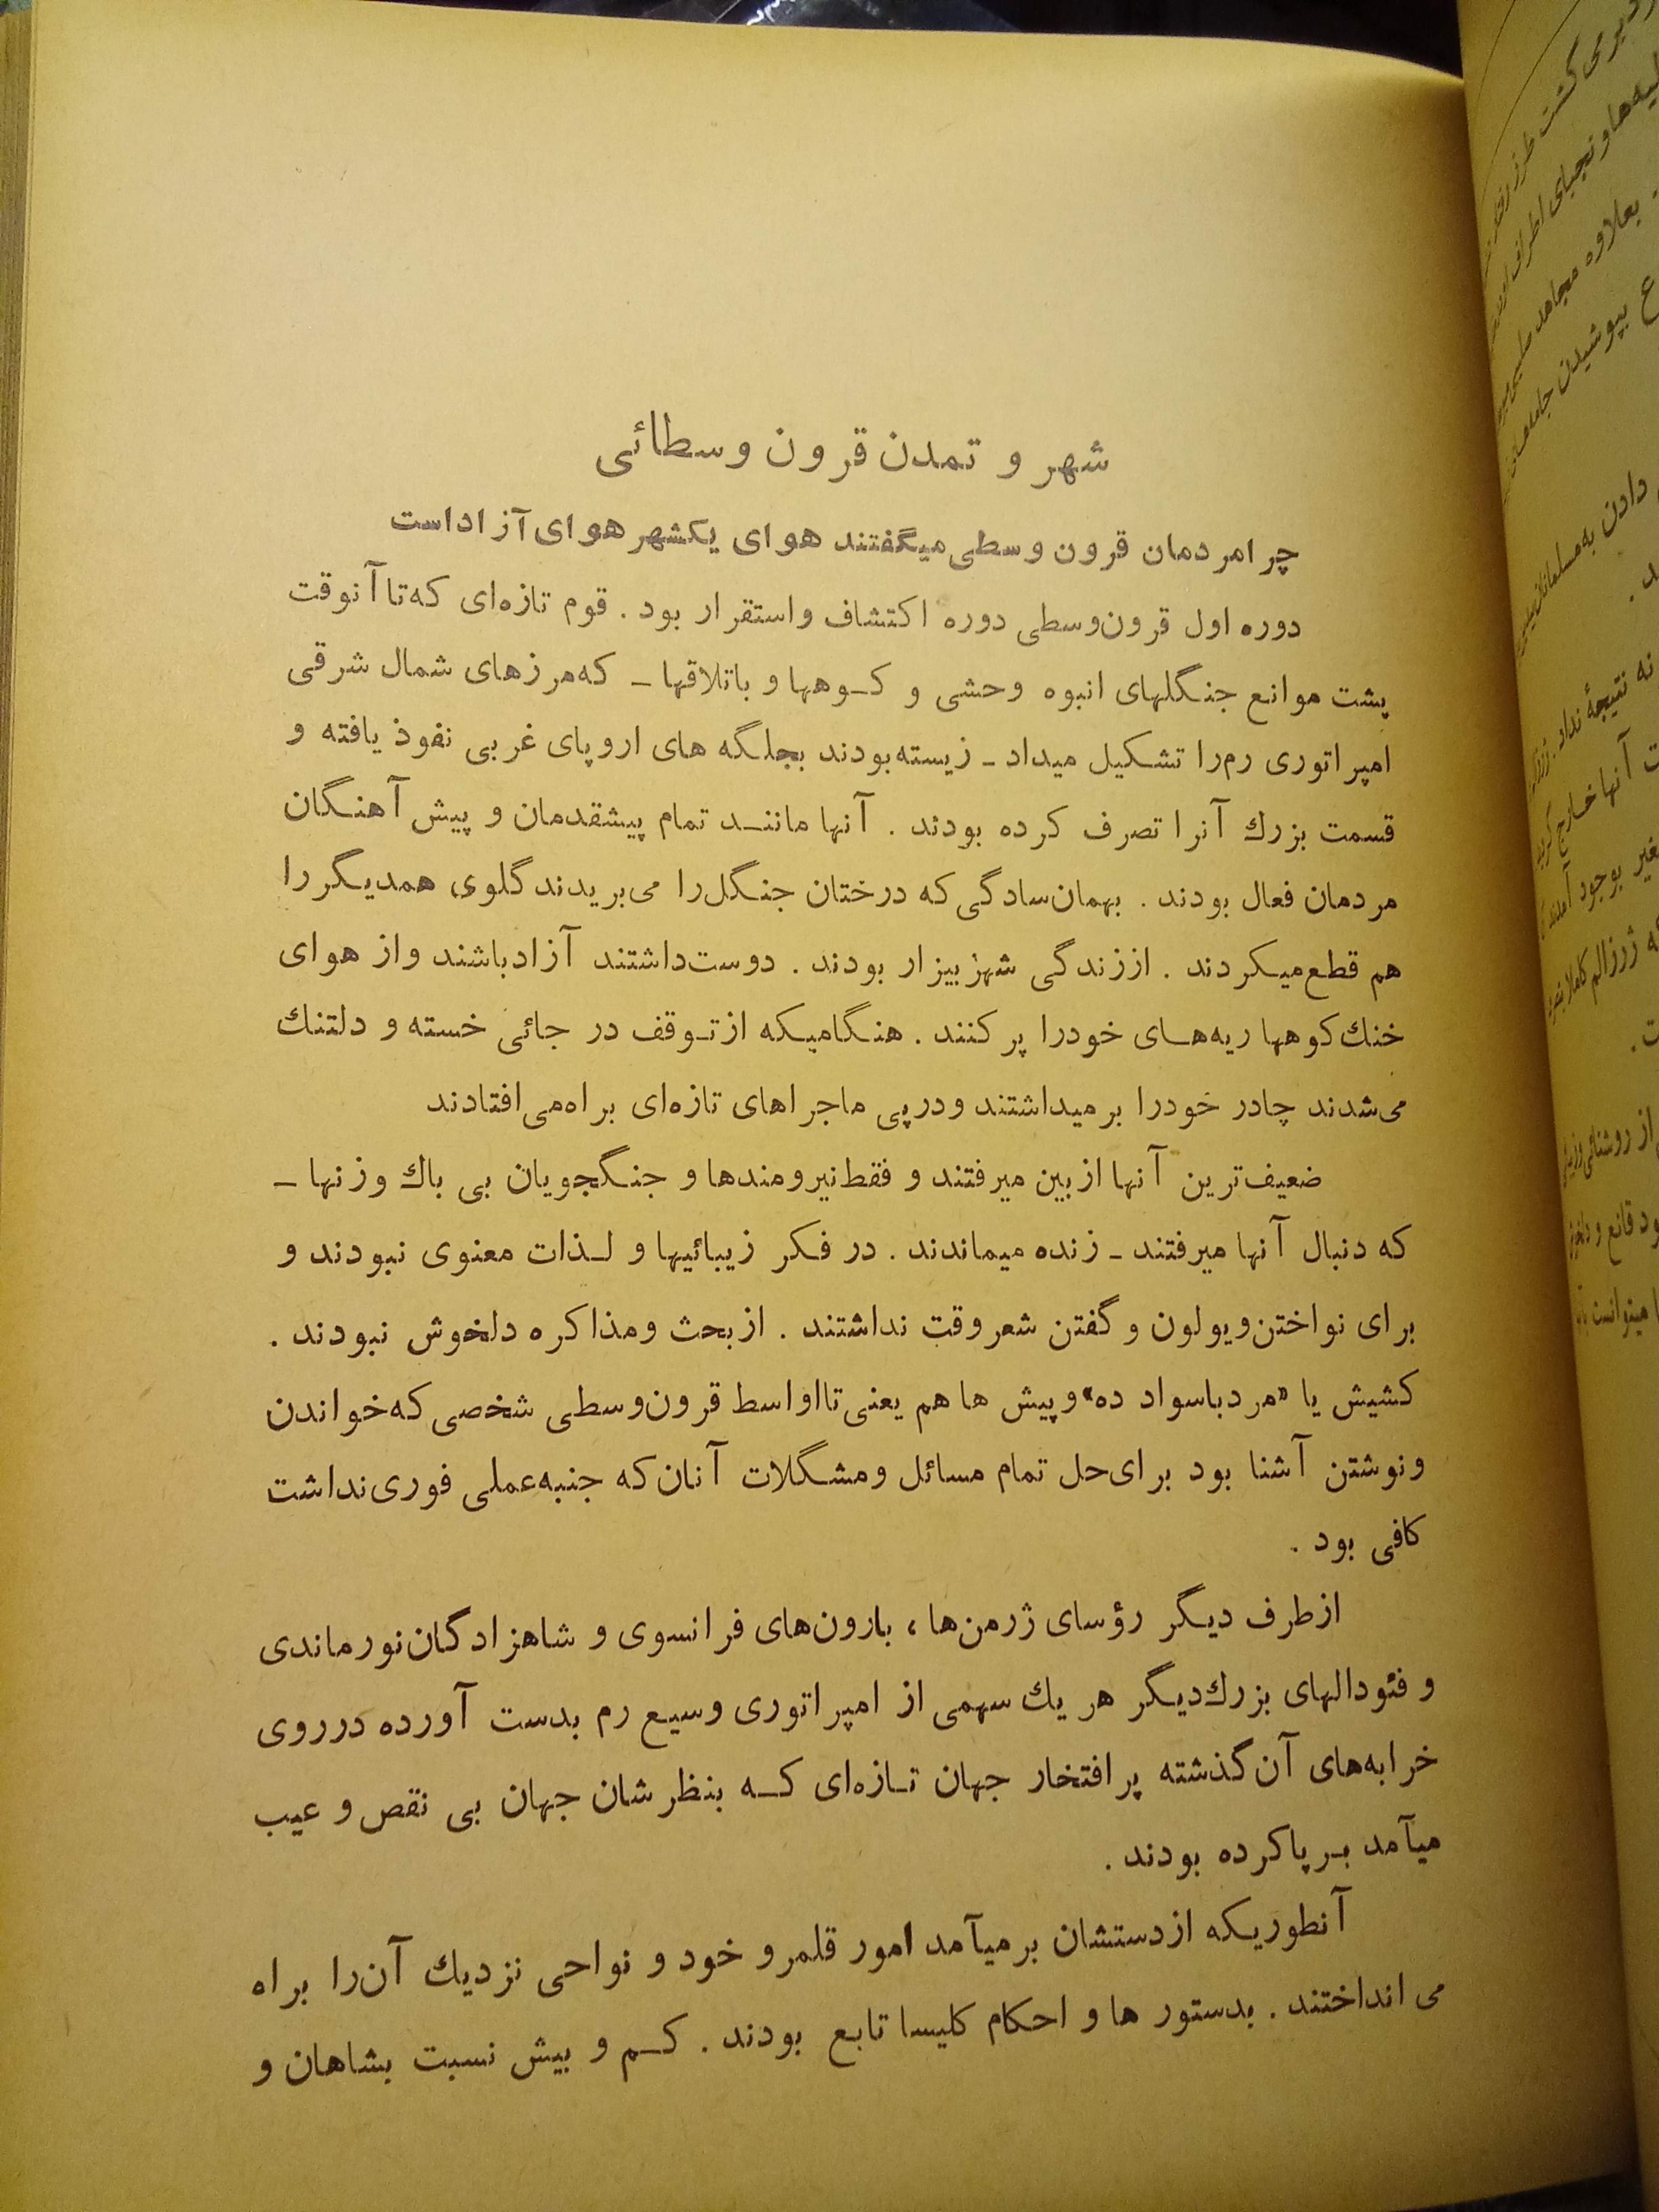 شهر و تمدن قرون وسطائی
چرا مردمان قرون وسطی میگفتند هوای یکشهر هوای آزاد است
دوره اول قرون‌وسطی دوره اکتشاف واستقرار بود . قوم تازه‌ای که تا آنوقت
پشت موانع جنگلهای انبوه وحشی و کوهها و باتلاقها ـ که مرزهای شمال شرقی
امپراتوری رم را تشکیل میداد ـ زیسته بودند بجلگه های اروپای غربی نفوذ یافته و
قسمت بزرك آنرا تصرف کرده بودند . آنها مانند تمام پیشقدمان و پیش آهنگان
مردمان فعال بودند . بهمان سادگی که درختان جنگل را می‌بریدند گلوی همدیگر را
هم قطع میکردند . از زندگی شهر بیزار بودند . دوست داشتند آزاد باشند و از هوای
خنك کوهها ریه‌های خودرا پر کنند . هنگامیکه از توقف در جائی خسته و دلتنك
می‌شدند چادر خودرا برمیداشتند و درپی ماجراهای تازه‌ای براه می‌افتادند
ضعیف‌ترین آنها از بین میرفتند و فقط نیرومندها و جنگجویان بی باك وزنها ـ
که دنبال آنها میرفتند ـ زنده میماندند . در فکر زیبائیها و لذات معنوی نبودند و
برای نواختن ویولون و گفتن شعر وقت نداشتند . از بحث ومذاکره دلخوش نبودند .
کشیش یا «مرد باسواد ده» و پیش ها هم یعنی تا اواسط قرون‌وسطی شخصی که خواندن
ونوشتن آشنا بود برای حل تمام مسائل ومشگلات آنان که جنبه عملی فوری نداشت
کافی بود .
ازطرف دیگر رؤسای ژرمن‌ها ، بارون‌های فرانسوی و شاهزادگان نورماندی
و فئودالهای بزرك دیگر هر یك سهمی از امپراتوری وسیع رم بدست آورده درروی
خرابه‌های آن گذشته پر افتخار جهان تازه‌ای که بنظرشان جهان بی نقص و عیب
میآمد برپا کرده بودند .
آنطوریکه از دستشان برمیآمد امور قلمرو خود و نواحی نزدیك آن‌را براه
می انداختند . بدستور ها و احکام کلیسا تابع بودند . کم و بیش نسبت بشاهان و